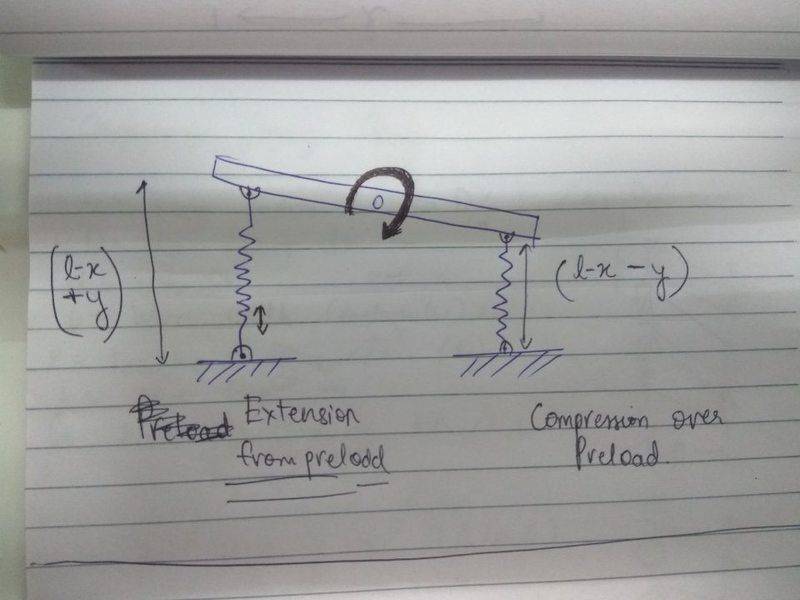 O
(l-x
+y)
(l-x-y)
Extension
from preload
Compression over
Preload.